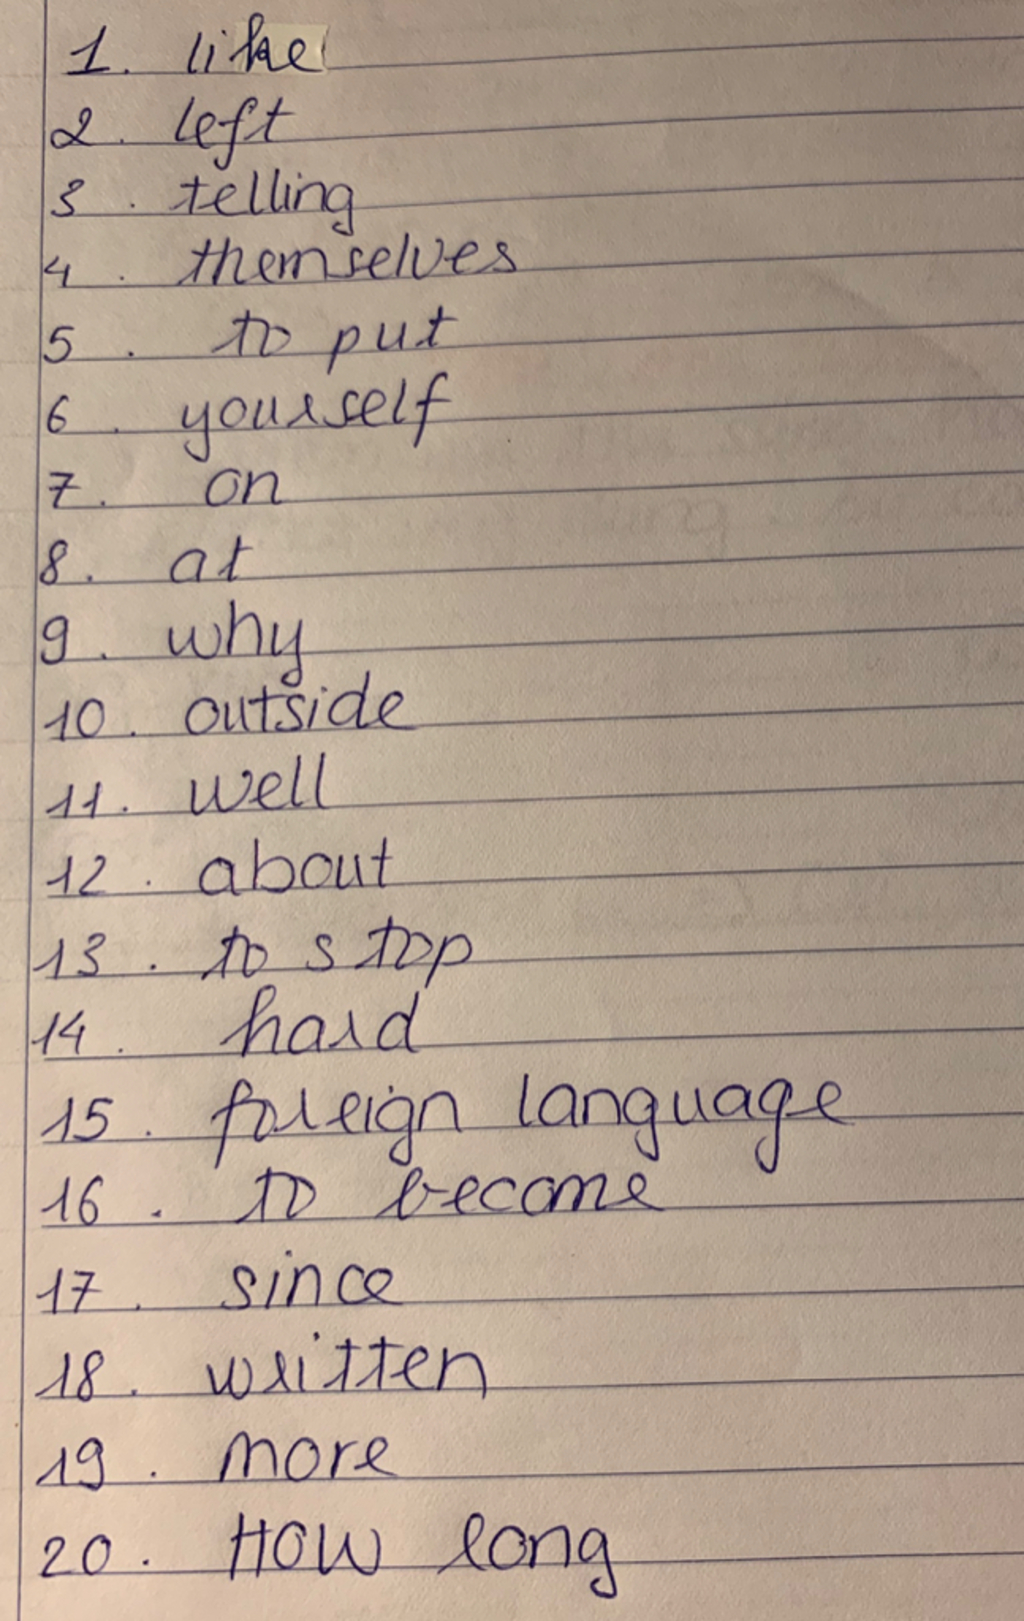 1. like
2. left
3. telling
4. themselves
5. to put
6. yourself
7. on
8. at
9. why
10. outside
11. well
12. about
13. to stop
14. hard
15. foreign language
16. to become
17. since
18. written
19. more
20. How long